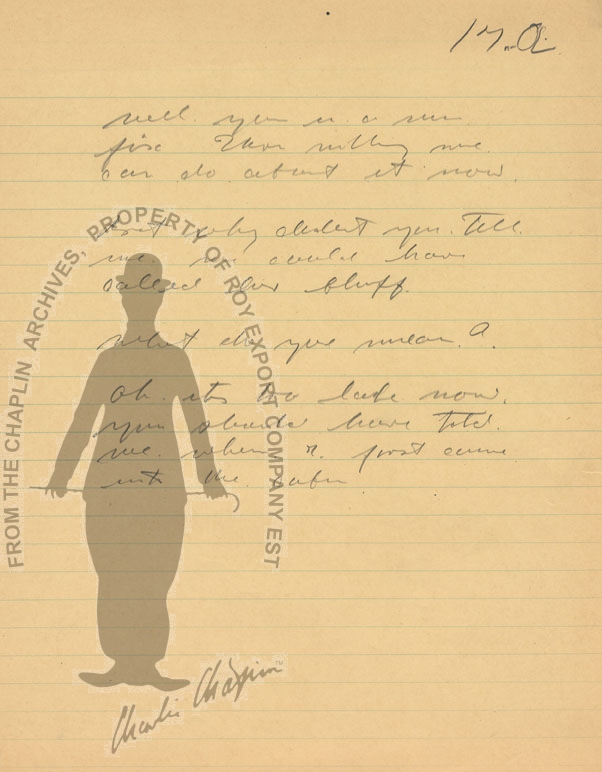 17.a
well. you in a nice
fix There nothing we
can do about it now.
but why didnt you. Tell.
me we could have
called her bluff.
what do you mean.
Oh. its too late now.
you should have told.
me. when I. first came
into the cabin
FROM THE CHAPLIN ARCHIVES, PROPERTY OF ROY EXPORT COMPANY EST
Charlie Chaplin TM